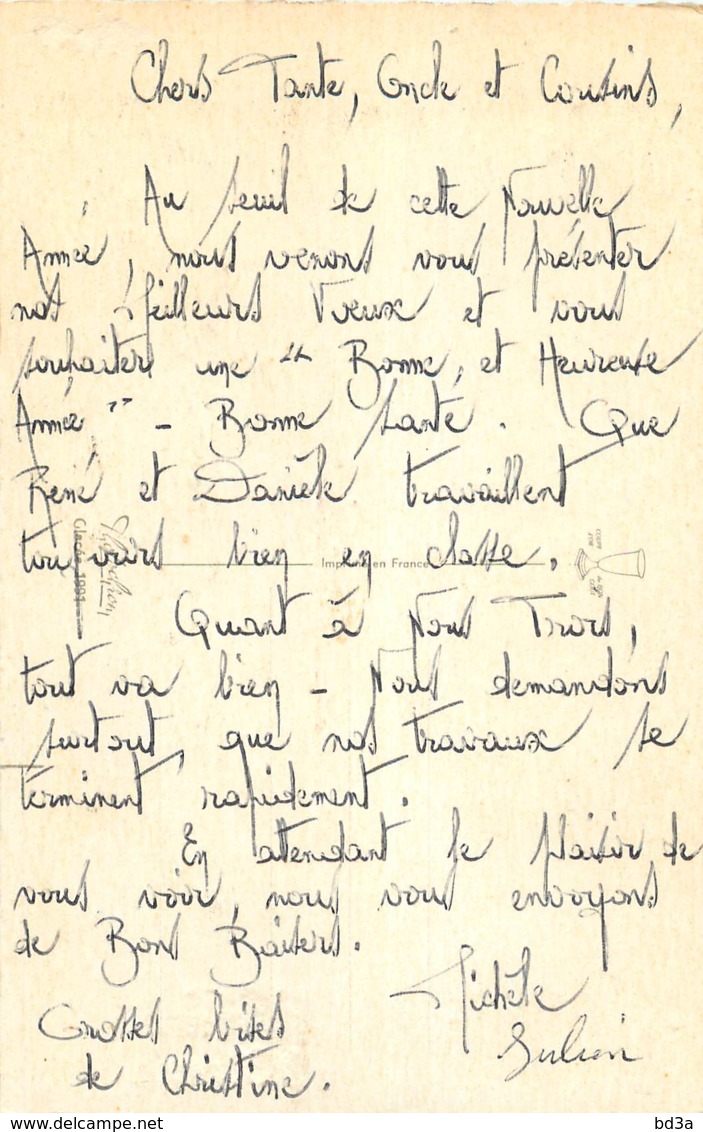 Chers Tante, Oncle et Cousins,
Au seuil de cette Nouvelle
Année, nous venons vous présenter
nos Meilleurs Voeux et vous
souhaiters une "Bonne, et Heureuse
Année" - Bonne santé. Que
René et Danièle travaillent
toujours bien en classe.
Imprimé en France
Glacée 1991
Quant à Nous Trois,
tout va bien - Nous demandons
surtout, que nos travaux se
terminent rapidement.
En attendant le plaisir de
vous voir, nous vous envoyons
de Bons Baisers.
Michèle
Grosses bises
de Christine.
delcampe.net
bd3a